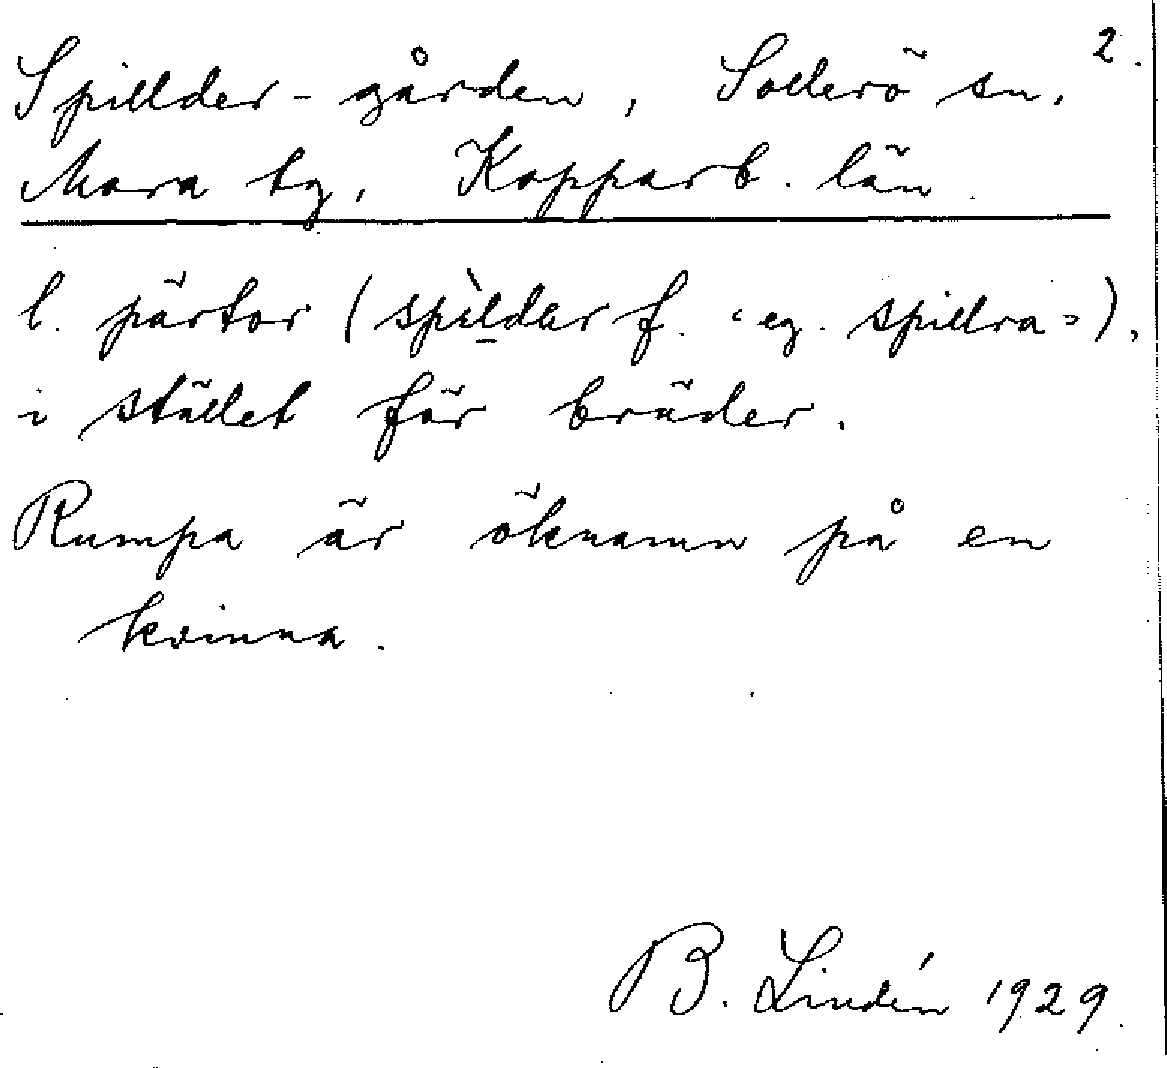 2.
Spillder-gården, Sollerö sn.
Mora tg, Kopparb. län
l. pärtor (spìldär f. "eg. spillra"),
i stället för bräder.
Rumpa är öknamn på en
kvinna.
B. Lindén 1929.